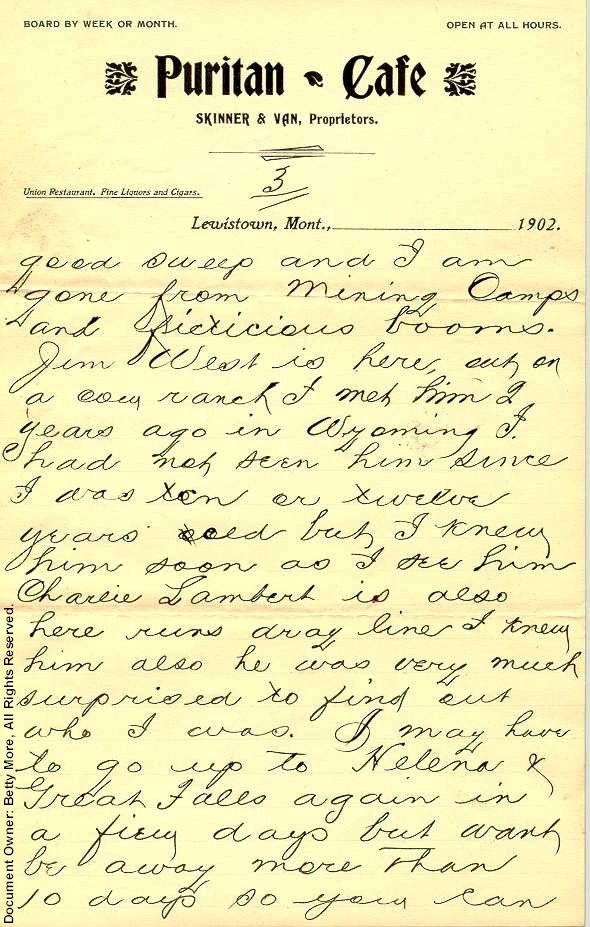 BOARD BY WEEK OR MONTH.
OPEN AT ALL HOURS.
Puritan Cafe
SKINNER & VAN, Proprietors.
3
Union Restaurant. Fine Liquors and Cigars.
Lewistown, Mont., 1902.
good sweep and I am
gone from Mining Camps
and ficticious booms.
Jim West is here, out on
a cow ranch I met him 2
years ago in Wyoming I
had not seen him since
I was ten or twelve
years oold but I knew
him soon as I see him
Charlie Lambert is also
here runs dray line I knew
him also he was very much
surprised to find out
who I was. I may have
to go up to Helena &
Great Falls again in
a few days but want
be away more than
10 days so you can
Document Owner: Betty More, All Rights Reserved.